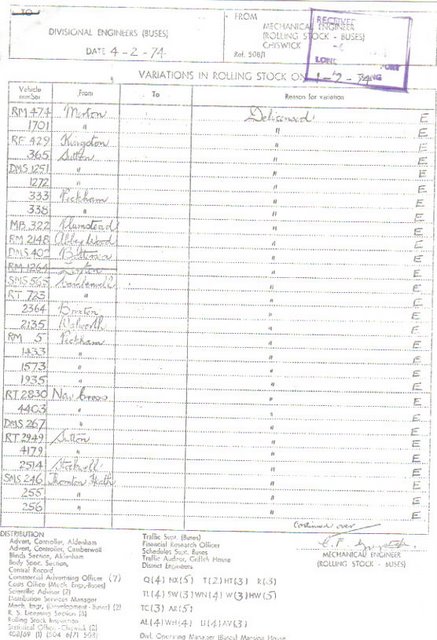 TO
DIVISIONAL ENGINEERS (BUSES)
DATE 4-2-74
FROM
MECHANICAL ENGINEER
(ROLLING STOCK - BUSES)
CHISWICK
Ref. 508/1
RECEIVED
VARIATIONS IN ROLLING STOCK ON 1-2-74
Vehicle From To Reason for variation
RM 474 Merton Delicensed E
1701 " " E
RF 429 Kingston " E
365 Sutton " E
DMS 1251 " " E
1272 " " E
333 Peckham " E
338 " " E
MB 322 Plumstead " E
RM 2148 Abbey Wood " E
DMS 402 Battersea " E
RM 1264 Leyton " E
SMS 565 Camberwell " E
RT 723 " " E
2364 Brixton " E
2135 Walworth " E
RM 5 Peckham " E
1433 " " E
1573 " " E
1935 " " E
RT 2830 New Cross " E
4403 " " E
DMS 267 " " E
RT 2949 Sutton " E
4179 " " E
2514 Stockwell " E
SMS 246 Thornton Heath " E
255 " " E
256 " " E
Continued over
MECHANICAL ENGINEER
(ROLLING STOCK - BUSES)
DISTRIBUTION
Advert. Controller, Aldenham
Advert. Controller, Camberwell
Blinds Section, Aldenham
Body Spec. Section,
Central Record
Commercial Advertising Officer (7)
Costs Office (Mech. Engr. Buses)
Scientific Adviser (2)
Distribution Services Manager
Mech. Engr. (Development - Buses) (2)
R. S. Licensing Section (3)
Rolling Stock Inspection
Statistical Office - Chiswick (2)
Traffic Supt. (Buses)
Financial Research Officer
Schedules Supt. Buses
Traffic Auditor, Griffith House
District Engineers
Q(4) NX(5) T(2) HT(3) R(3)
TL(4) SW(3) WN(4) W(3) HW(5)
TC(3) AR(5)
AL(4) WH(4) U(4) AV(3)
Divl. Operating Manager (Buses) Mansion House